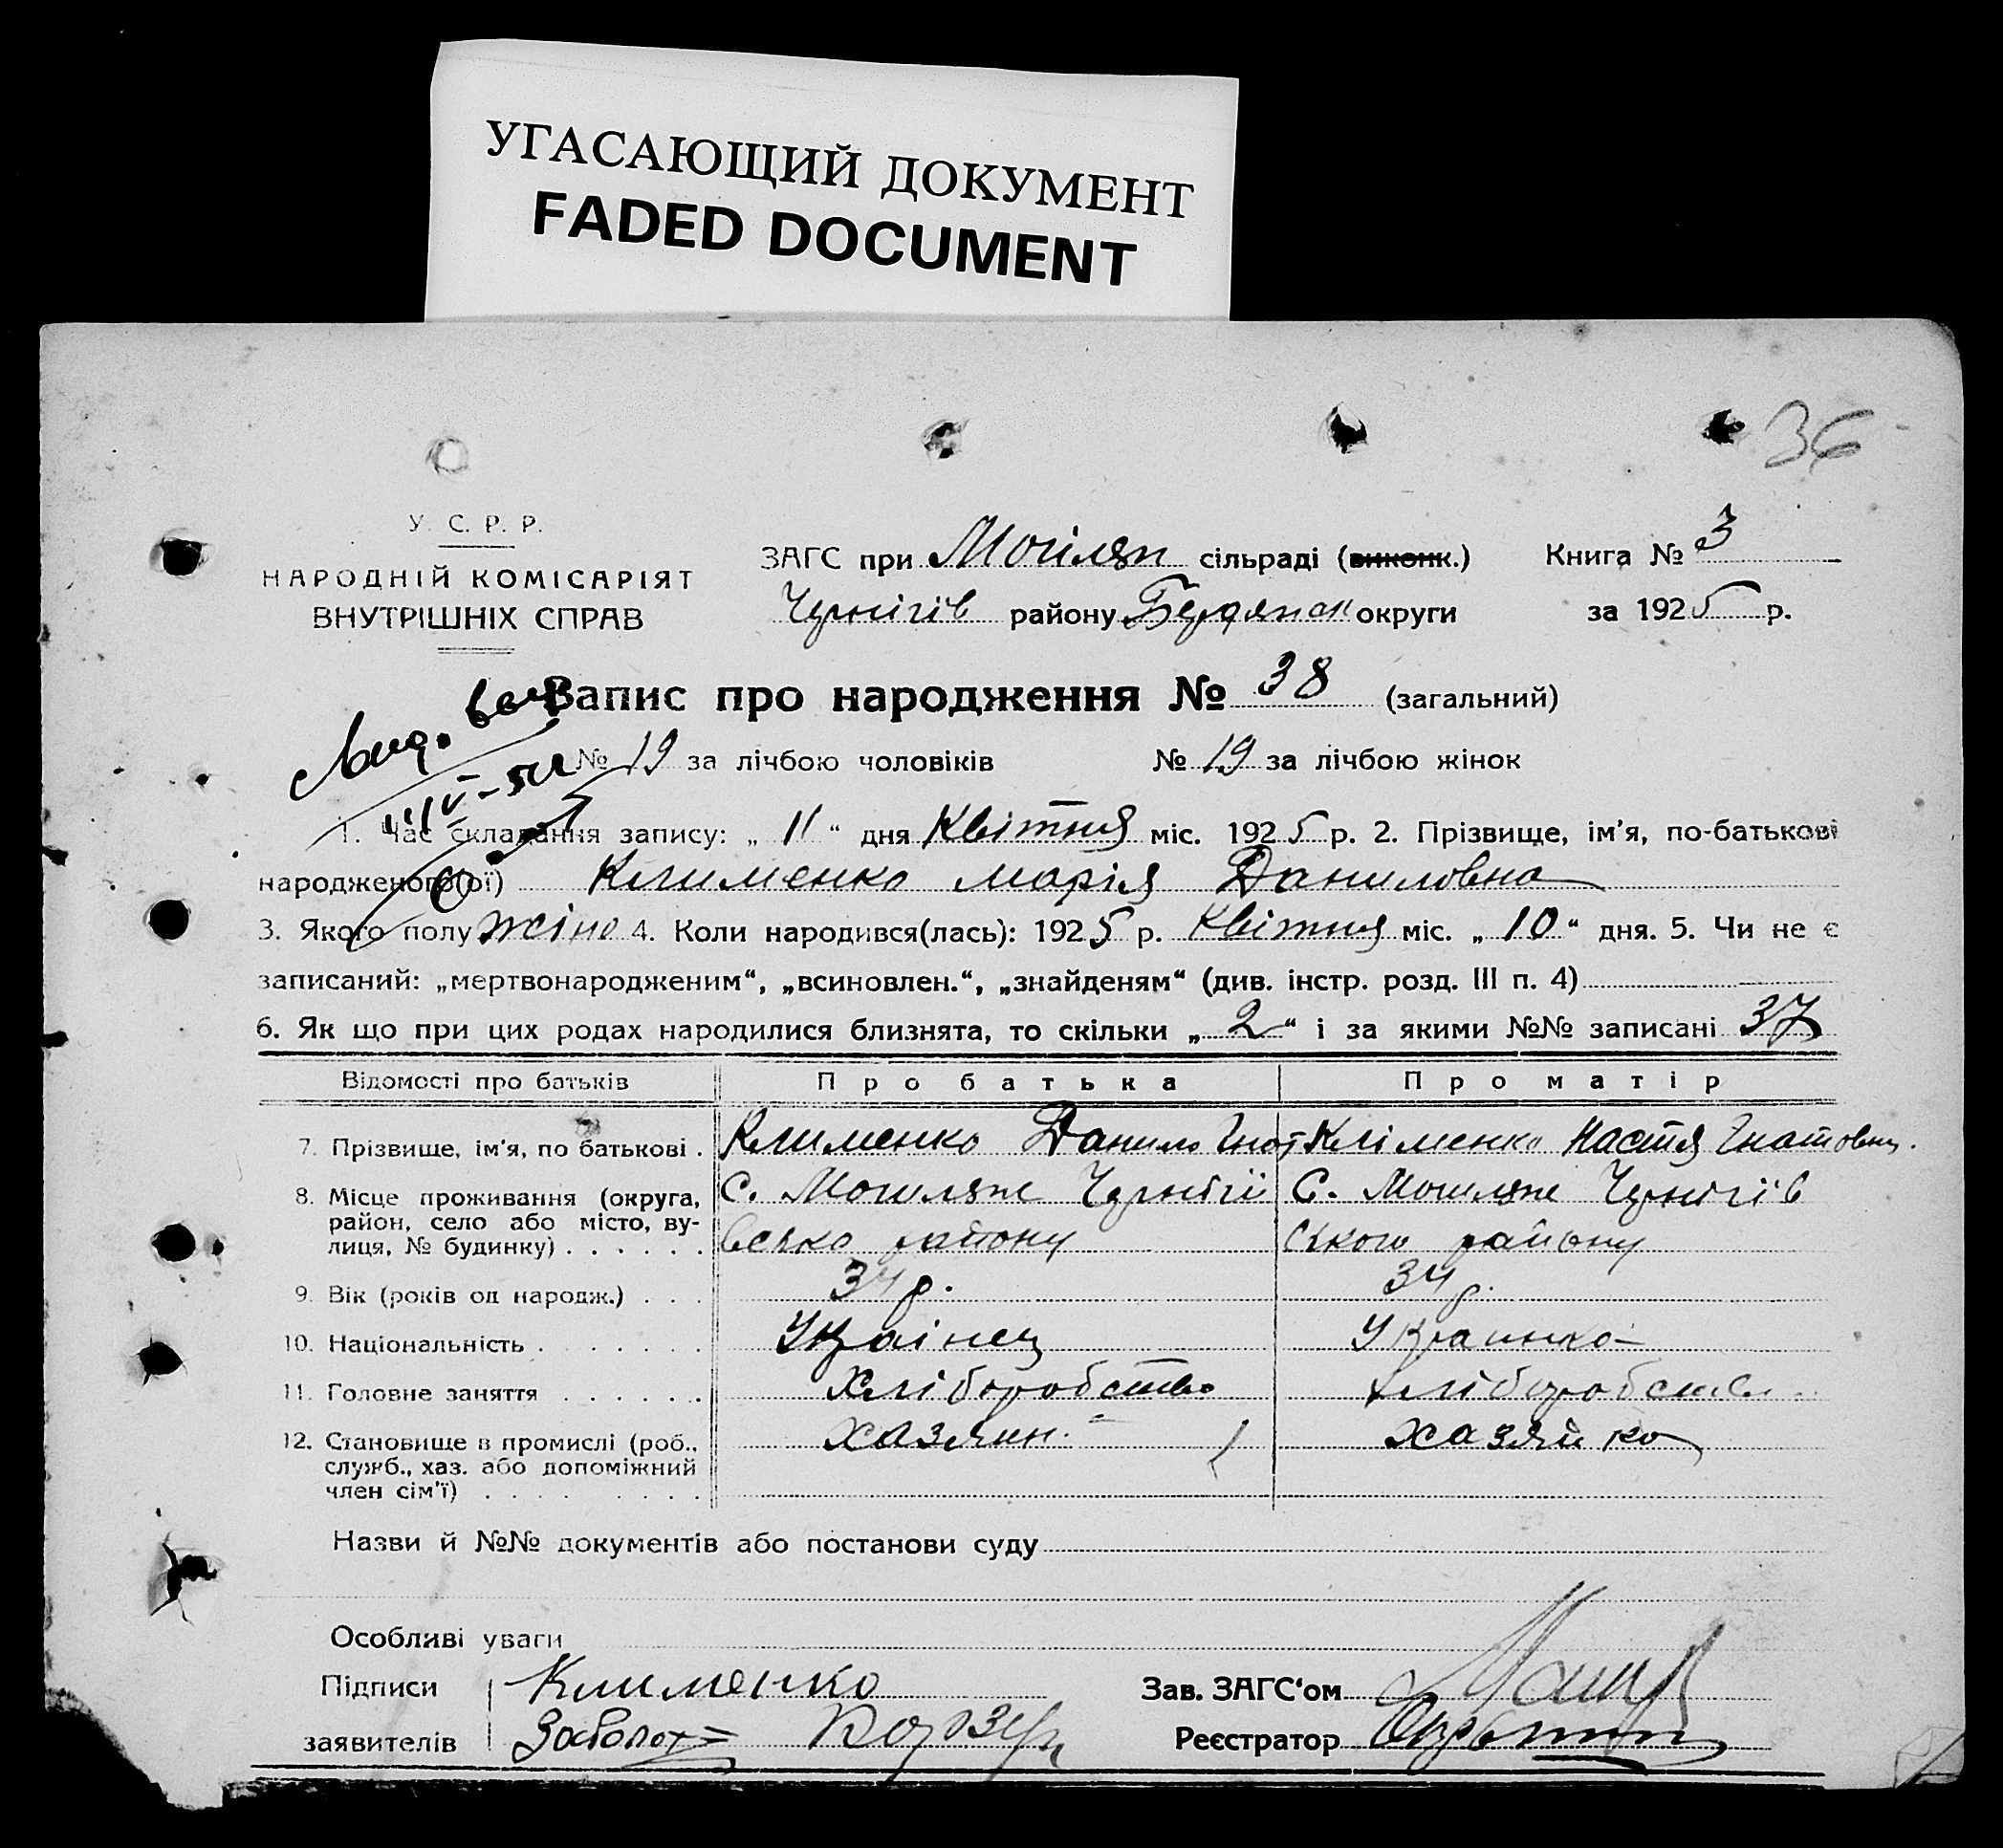 УГАСАЮЩИЙ ДОКУМЕНТ
FADED DOCUMENT
36
У. С. Р. Р.
НАРОДНІЙ КОМІСАРІЯТ
ВНУТРІШНІХ СПРАВ
ЗАГС при сільраді (виконк.)
Книга № 3
Чернігів району Бердянськ округи
за 1925 р.
Запис про народження № 38 (загальний)
№ 19 за лічбою чоловіків № 19 за лічбою жінок
1. Час складання запису: „ 11 “ дня Квітня міс. 1925 р. 2. Прізвище, ім’я, по-батькові
народженого(ої) Клименко Марія Даниловна
3. Якого полу жіно 4. Коли народився(лась): 1925 р. Квітня міс. „ 10 “ дня. 5. Чи не є
записаний: „мертвонародженим“, „всиновлен.“, „знайденям“ (див. інстр. розд. III п. 4)
6. Як що при цих родах народилися близнята, то скільки „ 2 “ і за якими №№ записані 37
Відомості про батьків Про батька Про матір
7. Прізвище, ім’я, по батькові . Клименко Данило Гнат Кліменко Настя Гнатовн.
8. Місце проживання (округа, С. Могиляни Чернігі С. Могиляни Чернігів
район, село або місто, ву-
лиця, № будинку) . . . . . . всько району ського району
9. Вік (років од народж.) . . . 34 р. 34 р.
10. Національність . . . . . . . Украінец Украинка
11. Головне заняття . . . . . . Хліборобство Хліборобство
12. Становище в промислі (роб., хазяин. хазяйка
служб., хаз. або допоміжний
член сім’ї) . . . . . . . . .
Назви й №№ документів або постанови суду
Особливі уваги
Підписи Клименко Зав. ЗАГС‘ом
заявителів Реєстратор